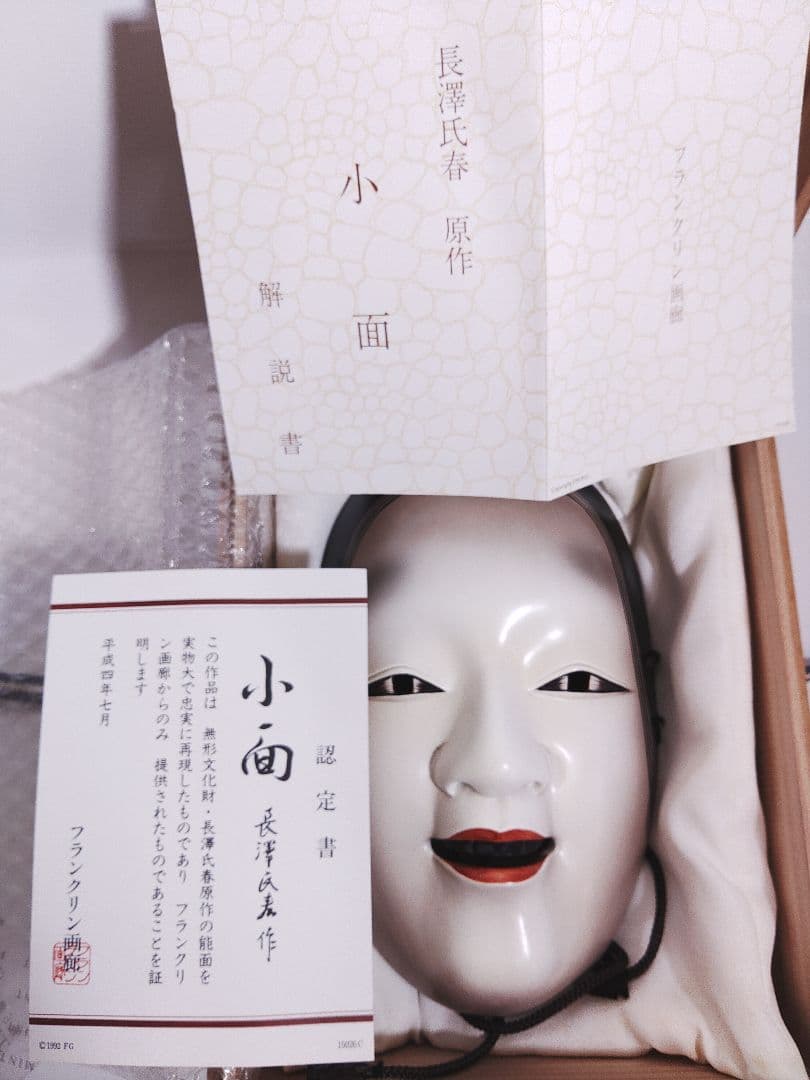 フランクリン画廊
長澤氏春 原作
小面
解説書
認定書
小面
長澤氏春作
この作品は 無形文化財・長澤氏春原作の能面を
実物大で忠実に再現したものであり フランクリ
ン画廊からのみ 提供されたものであることを証
明します
平成四年七月
フランクリン画廊
©1992 FG